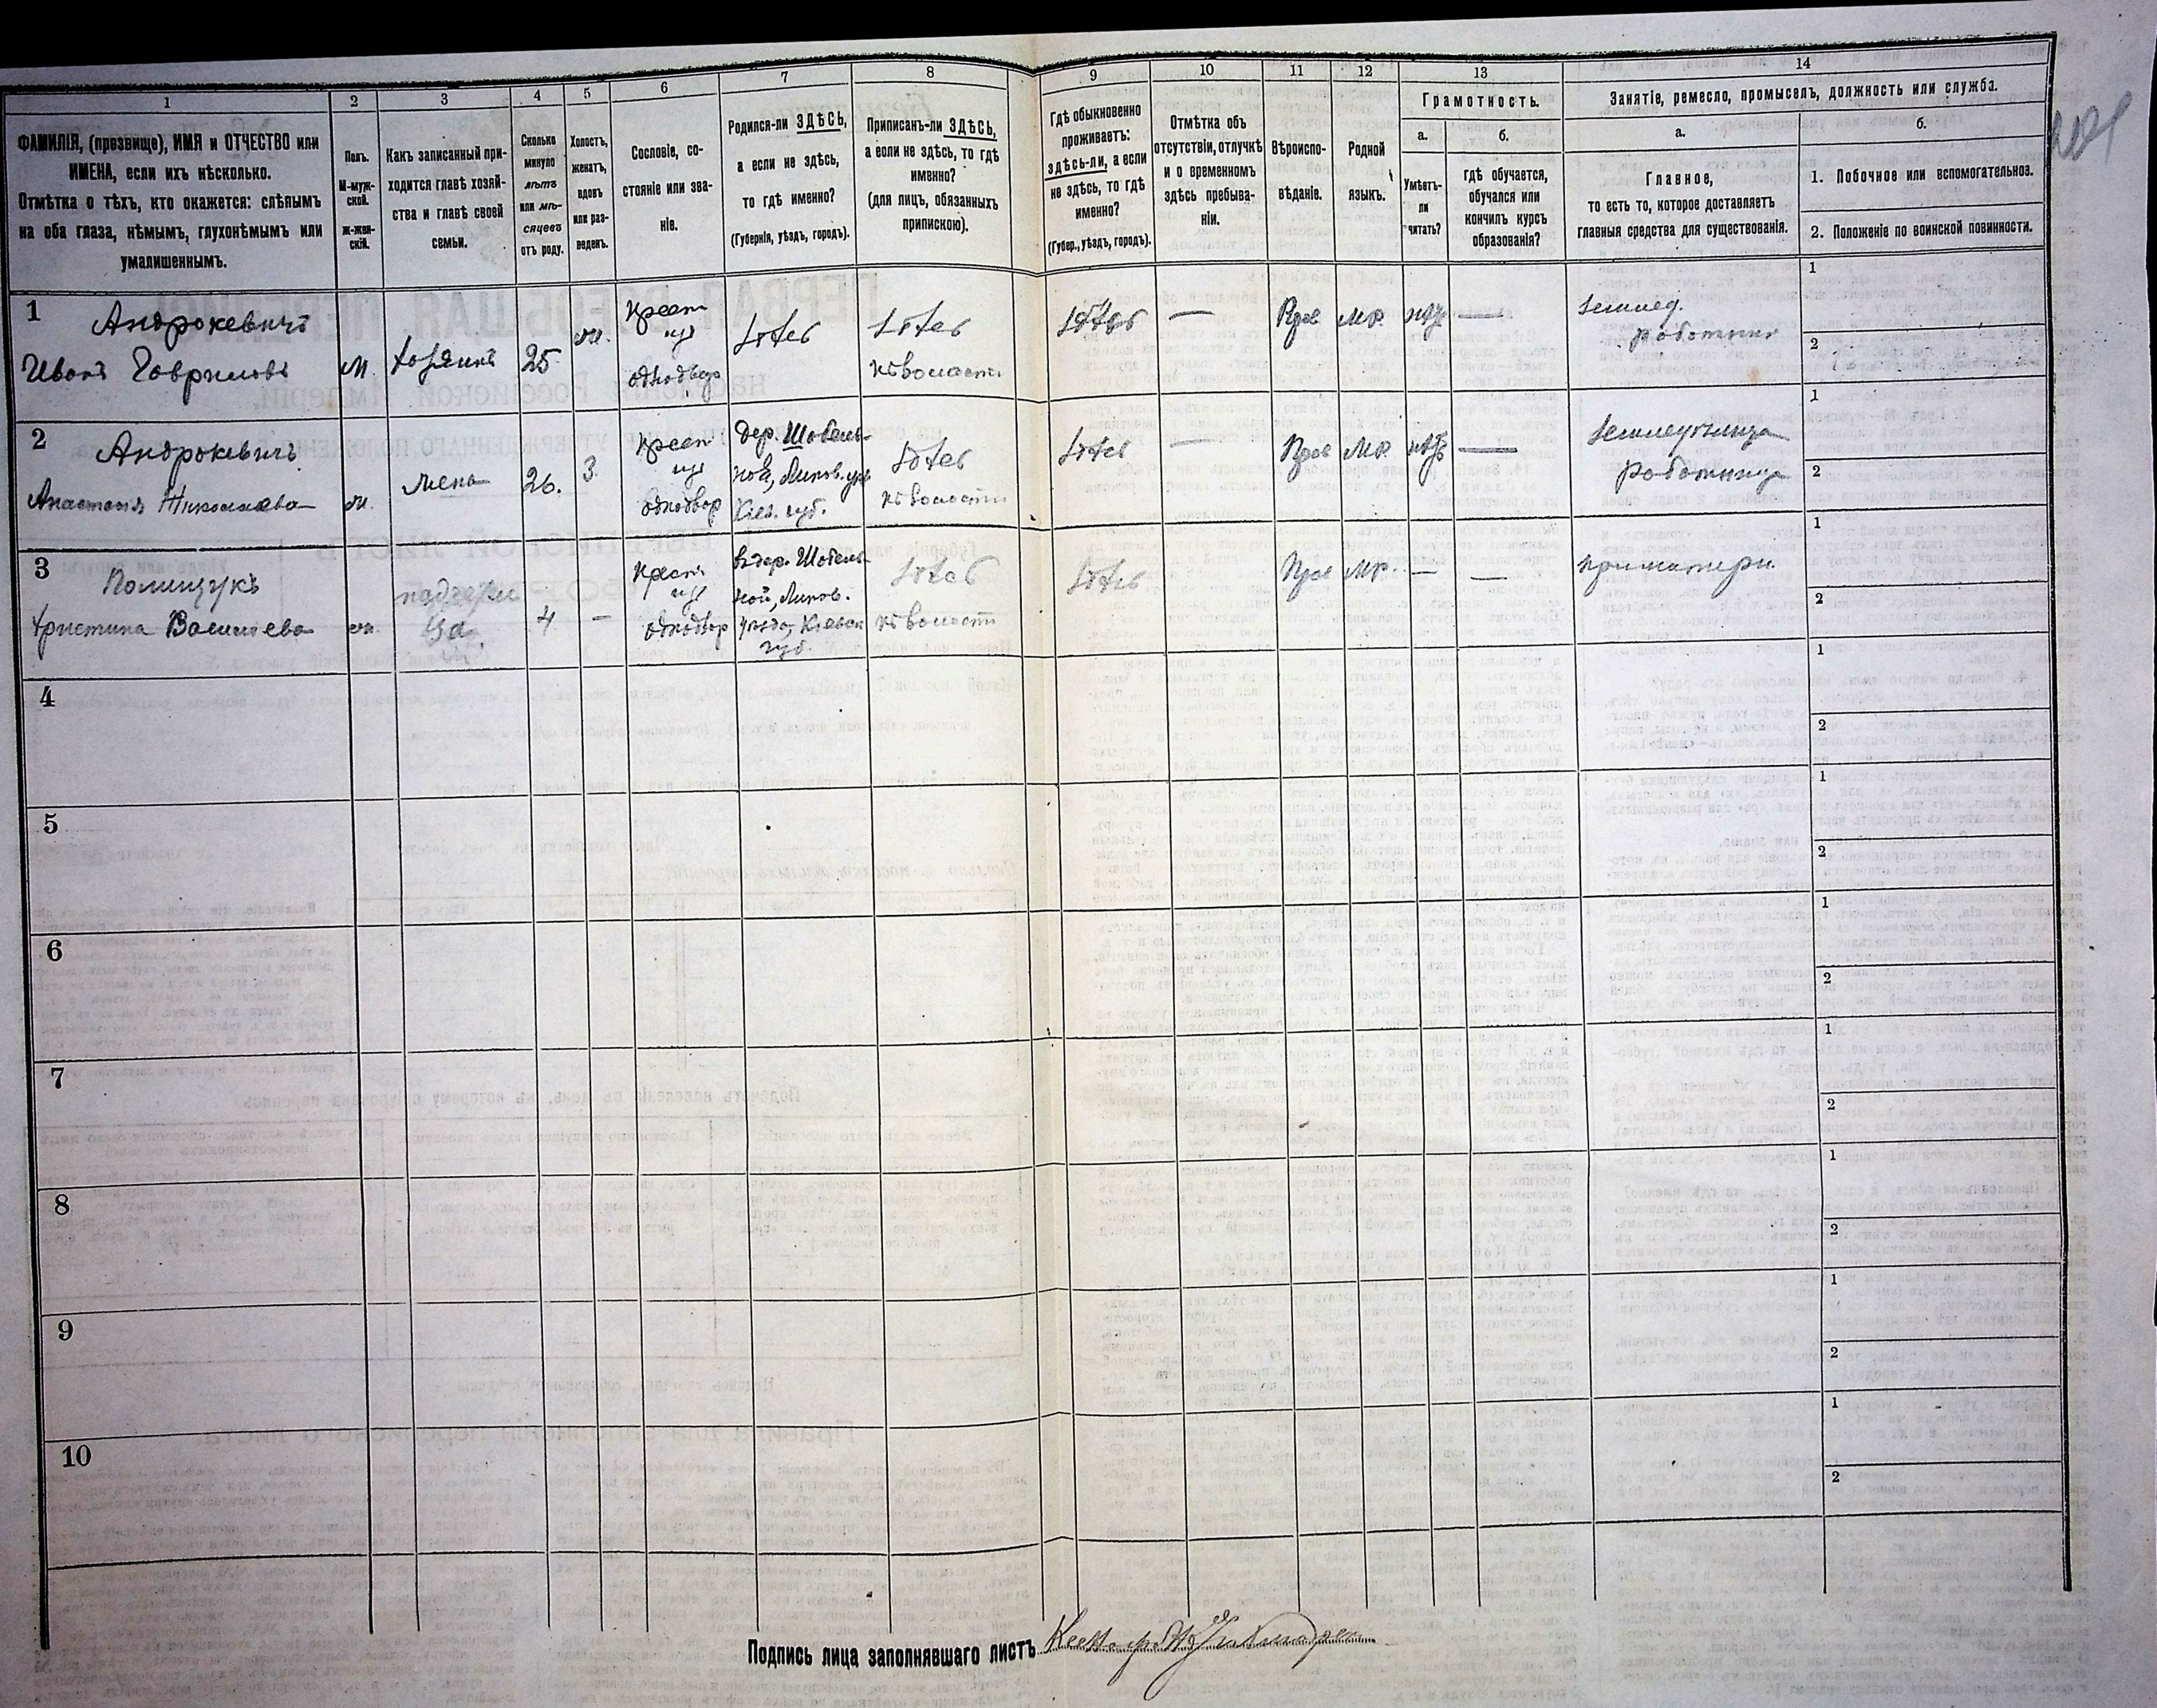 1
2
3
4
5
6
7
8
9
10
11
12
13
14
ФАМИЛІЯ, (прозвище), ИМЯ и ОТЧЕСТВО или
ИМЕНА, если ихъ нѣсколько.
Отмѣтка о тѣхъ, кто окажется: слѣпымъ
на оба глаза, нѣмымъ, глухонѣмымъ или
умалишеннымъ.
Полъ.
М-муж-
ской.
ж-жен-
скій.
Какъ записанный при-
ходится главѣ хозяй-
ства и главѣ своей
семьи.
Сколько
минуло
лѣтъ
или мѣ-
сяцевъ
отъ роду.
Холостъ,
женатъ,
вдовъ
или раз-
веденъ.
Сословіе, со-
стояніе или зва-
ніе.
Родился-ли ЗДѢСЬ,
а если не здѣсь,
то гдѣ именно?
(Губернія, уѣздъ, городъ).
Приписанъ-ли ЗДѢСЬ,
а если не здѣсь, то гдѣ
именно?
(для лицъ, обязанныхъ
припискою).
Гдѣ обыкновенно
проживаетъ:
здѣсь-ли, а если
не здѣсь, то гдѣ
именно?
(Губер., уѣздъ, городъ).
Отмѣтка объ
отсутствіи, отлучкѣ
и о временномъ
здѣсь пребыва-
ніи.
Вѣроиспо-
вѣданіе.
Родной
языкъ.
Грамотность.
а.
б.
Умѣетъ-
ли
читать?
гдѣ обучается,
обучался или
кончилъ курсъ
образованія?
Занятіе, ремесло, промыселъ, должность или служба.
а.
б.
Главное,
то есть то, которое доставляетъ
главныя средства для существованія.
1. Побочное или вспомогательное.
2. Положеніе по воинской повинности.
1
Андрокевичъ
Иванъ Гавриловъ
м.
хозяинъ
25
крест
изъ
однодвор
здѣсь
здѣсь
къ волости
здѣсь
—
Прав
мр.
нѣтъ
—
землед.
работник
1
2
2
Андрокевичъ
Анастасія Николаева
жена
26.
з.
крест
изъ
однодвор
дер. Шабель-
ной, Липов. уѣз
Кіев. губ.
здѣсь
къ волости
здѣсь
—
Прав
мр.
нѣтъ
—
работница
1
2
3
Полищукъ
Христина Васильева
4
—
крест
изъ
однодвор
въ дер. Шабель-
ной, Липов.
уѣзда, Кіевск
губ.
здѣсь
къ волости
здѣсь
Прав
мр.
—
—
при матери
1
2
4
1
2
5
1
2
6
1
2
7
1
2
8
1
2
9
1
2
10
1
2
Подпись лица заполнявшаго листъ